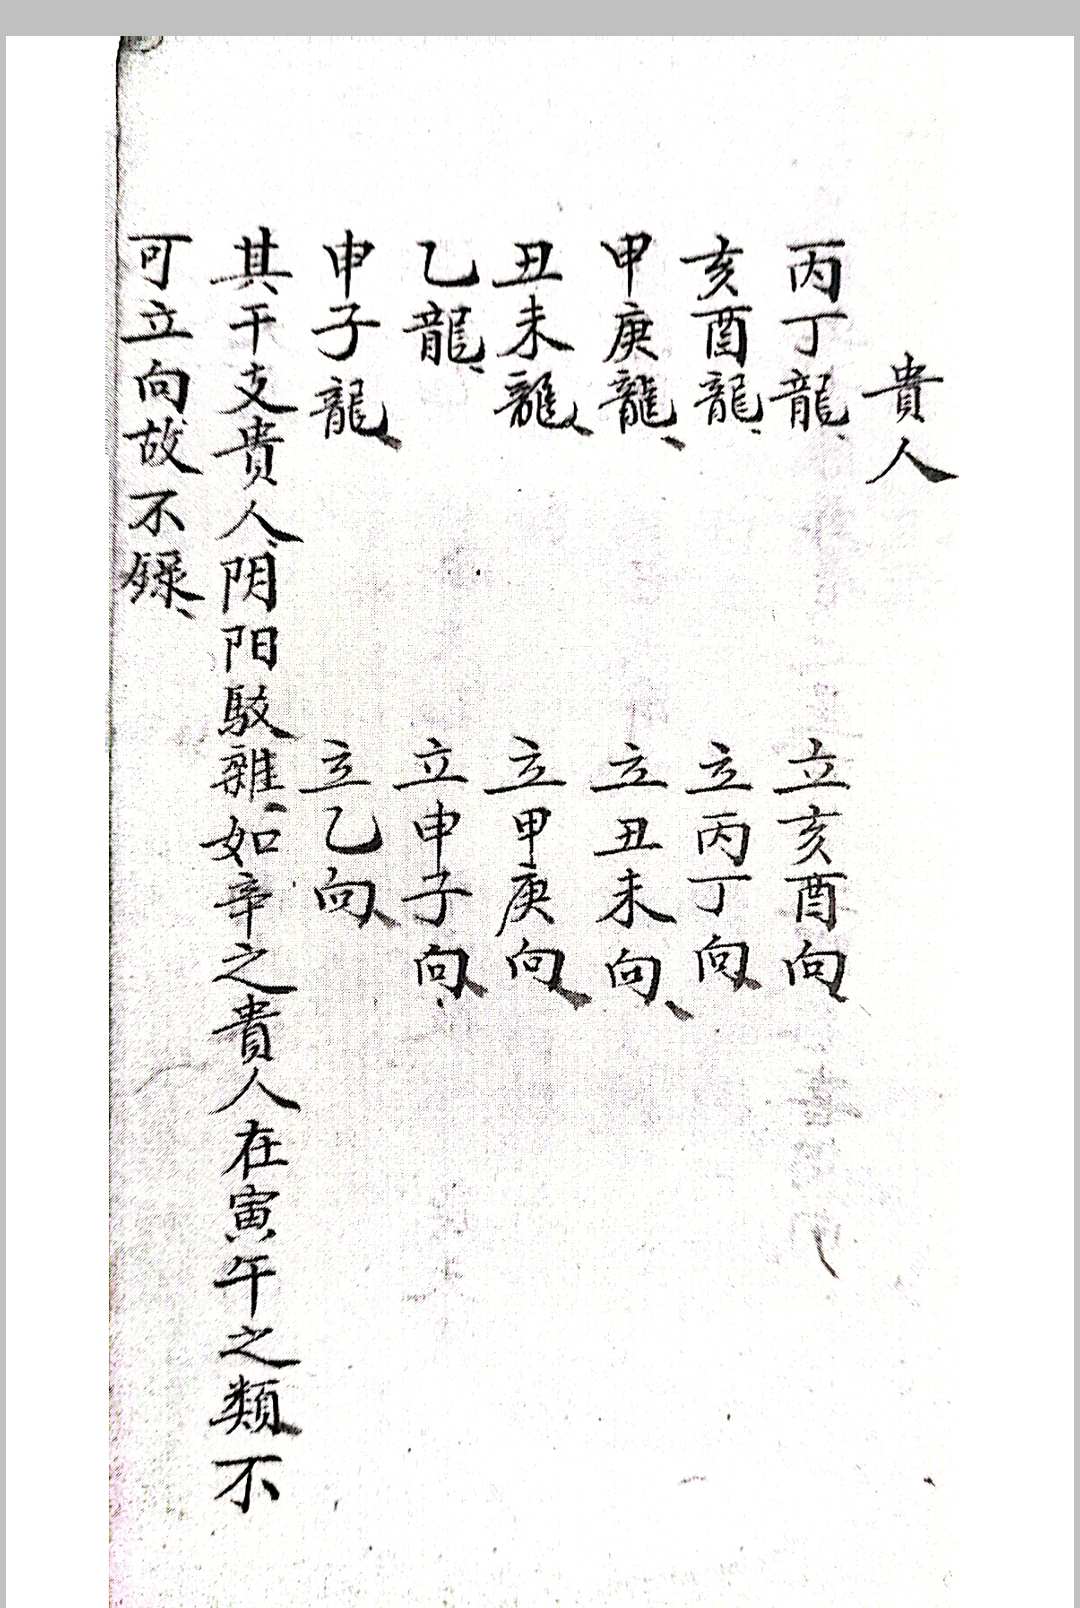 貴人
丙丁龍 立亥酉向
亥酉龍 立丙丁向
甲庚龍 立丑未向
丑未龍 立甲庚向
乙龍 立申子向
申子龍 立乙向
其干支貴人阴阳駁雜如辛之貴人在寅午之類不
可立向故不録